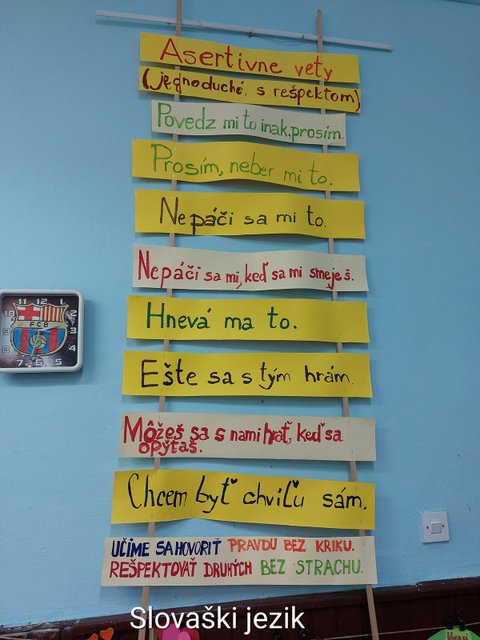 Asertívne vety
(jednoduché, s rešpektom)
Povedz mi to inak, prosím.
Prosím, neber mi to.
Nepáči sa mi to.
Nepáči sa mi, keď sa mi smeješ.
Hnevá ma to.
Ešte sa s tým hrám.
Môžeš sa s nami hrať, keď sa
opýtaš.
Chcem byť chvíľu sám.
UČÍME SA HOVORIŤ PRAVDU BEZ KRIKU.
REŠPEKTOVAŤ DRUHÝCH BEZ STRACHU.
FCB
Slovaški jezik